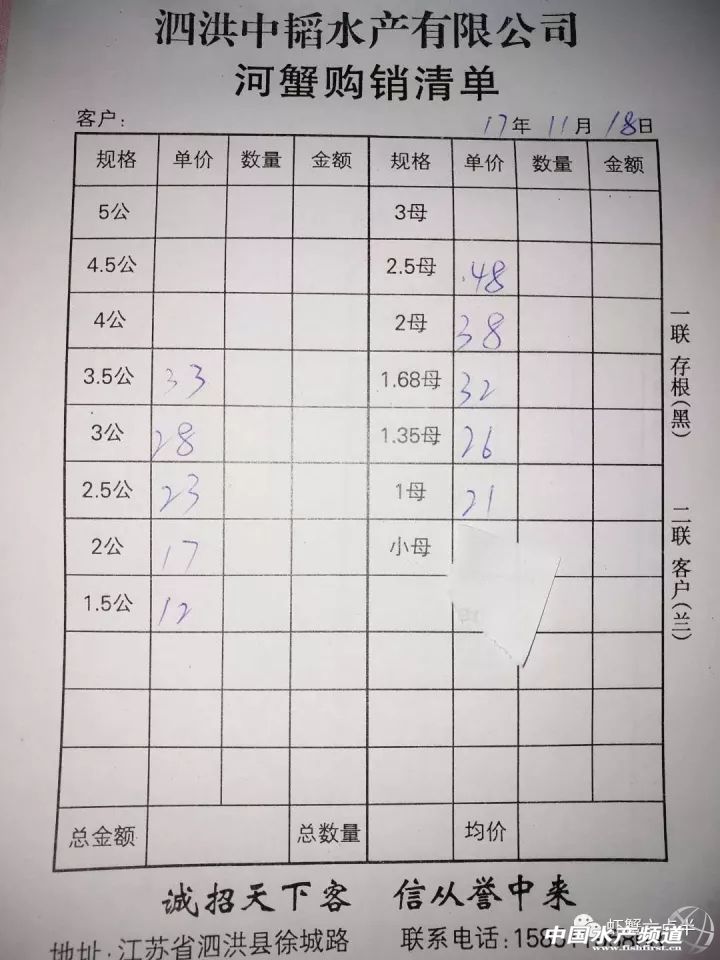 泗洪中韬水产有限公司
河蟹购销清单
客户: 17年 11月 18日
规格 单价 数量 金额 规格 单价 数量 金额
5公 3母
4.5公 2.5母 48
4公 2母 38
3.5公 33 1.68母 32
3公 28 1.35母 26
2.5公 23 1母 21
2公 17 小母
1.5公 12
总金额 总数量 均价
一联 存根(黑) 二联 客户(兰)
诚招天下客 信从誉中来
地址:江苏省泗洪县徐城路 联系电话:
虾蟹六点半
中国水产频道
www.fishfirst.cn